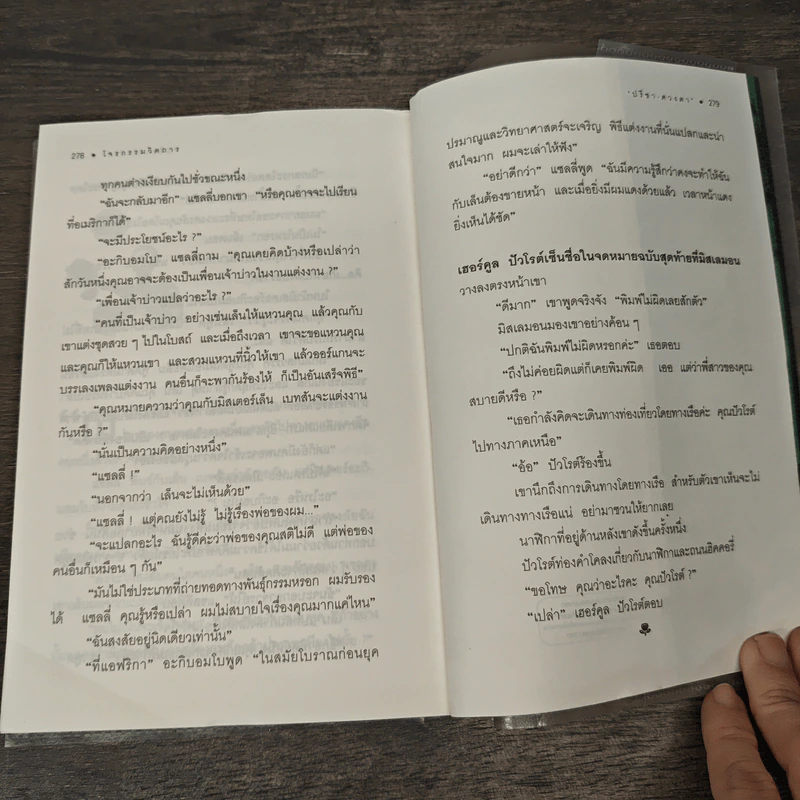 278 • โจรกรรมจิตถาร
ทุกคนต่างเงียบกันไปชั่วขณะหนึ่ง
“ฉันจะกลับมาอีก” แซลลี่บอกเขา “หรือคุณอาจจะไปเรียน
ที่อเมริกาก็ได้”
“จะมีประโยชน์อะไร ?”
“อะกิบอมโบ” แซลลี่ถาม “คุณเคยคิดบ้างหรือเปล่าว่า
สักวันหนึ่งคุณอาจจะต้องเป็นเพื่อนเจ้าบ่าวในงานแต่งงาน ?”
“เพื่อนเจ้าบ่าวแปลว่าอะไร ?”
“คนที่เป็นเจ้าบ่าว อย่างเช่นเล็นให้แหวนคุณ แล้วคุณกับ
เขาแต่งชุดสวย ๆ ไปในโบสถ์ และเมื่อถึงเวลา เขาจะขอแหวนคุณ
และคุณก็ให้แหวนเขา และสวมแหวนที่นิ้วให้เขา แล้วออร์แกนจะ
บรรเลงเพลงแต่งงาน คนอื่นก็จะพากันร้องไห้ ก็เป็นอันเสร็จพิธี”
“คุณหมายความว่าคุณกับมิสเตอร์เล็น เบทสันจะแต่งงาน
กันหรือ ?”
“นั่นเป็นความคิดอย่างหนึ่ง”
“แซลลี่ !”
“นอกจากว่า เล็นจะไม่เห็นด้วย”
“แซลลี่ ! แต่คุณยังไม่รู้ ไม่รู้เรื่องพ่อของผม...”
“จะแปลกอะไร ฉันรู้ดีค่ะว่าพ่อของคุณสติไม่ดี แต่พ่อของ
คนอื่นก็เหมือน ๆ กัน”
“มันไม่ใช่ประเภทที่ถ่ายทอดทางพันธุ์กรรมหรอก ผมรับรอง
ได้ แซลลี่ คุณรู้หรือเปล่า ผมไม่สบายใจเรื่องคุณมากแค่ไหน”
“ฉันสงสัยอยู่นิดเดียวเท่านั้น”
“ที่แอฟริกา” อะกิบอมโบพูด “ในสมัยโบราณก่อนยุค
‘ปรีชา ดวงตา’ • 279
ปรมาณูและวิทยาศาสตร์จะเจริญ พิธีแต่งงานที่นั่นแปลกและน่า
สนใจมาก ผมจะเล่าให้ฟัง”
“อย่าดีกว่า” แซลลี่พูด “ฉันมีความรู้สึกว่าคงจะทำให้ฉัน
กับเล็นต้องขายหน้า และเมื่อยิ่งมีผมแดงด้วยแล้ว เวลาหน้าแดง
ยิ่งเห็นได้ชัด”
เฮอร์คูล ปัวโรต์เซ็นชื่อในจดหมายฉบับสุดท้ายที่มิสเลมอน
วางลงตรงหน้าเขา
“ดีมาก” เขาพูดจริงจัง “พิมพ์ไม่ผิดเลยสักตัว”
มิสเลมอนมองเขาอย่างค้อน ๆ
“ปกติฉันพิมพ์ไม่ผิดหรอกค่ะ” เธอตอบ
“ถึงไม่ค่อยผิดแต่ก็เคยพิมพ์ผิด เออ แต่ว่าพี่สาวของคุณ
สบายดีหรือ ?”
“เธอกำลังคิดจะเดินทางท่องเที่ยวโดยทางเรือค่ะ คุณปัวโรต์
ไปทางภาคเหนือ”
“อ้อ” ปัวโรต์ร้องขึ้น
เขานึกถึงการเดินทางโดยทางเรือ สำหรับตัวเขาเห็นจะไม่
เดินทางทางเรือแน่ อย่ามาชวนให้ยากเลย
นาฬิกาที่อยู่ด้านหลังเขาดังขึ้นครั้งหนึ่ง
ปัวโรต์ท่องคำโคลงเกี่ยวกับนาฬิกาและถนนฮิคคอรี่
“ขอโทษ คุณว่าอะไรคะ คุณปัวโรต์ ?”
“เปล่า” เฮอร์คูล ปัวโรต์ตอบ